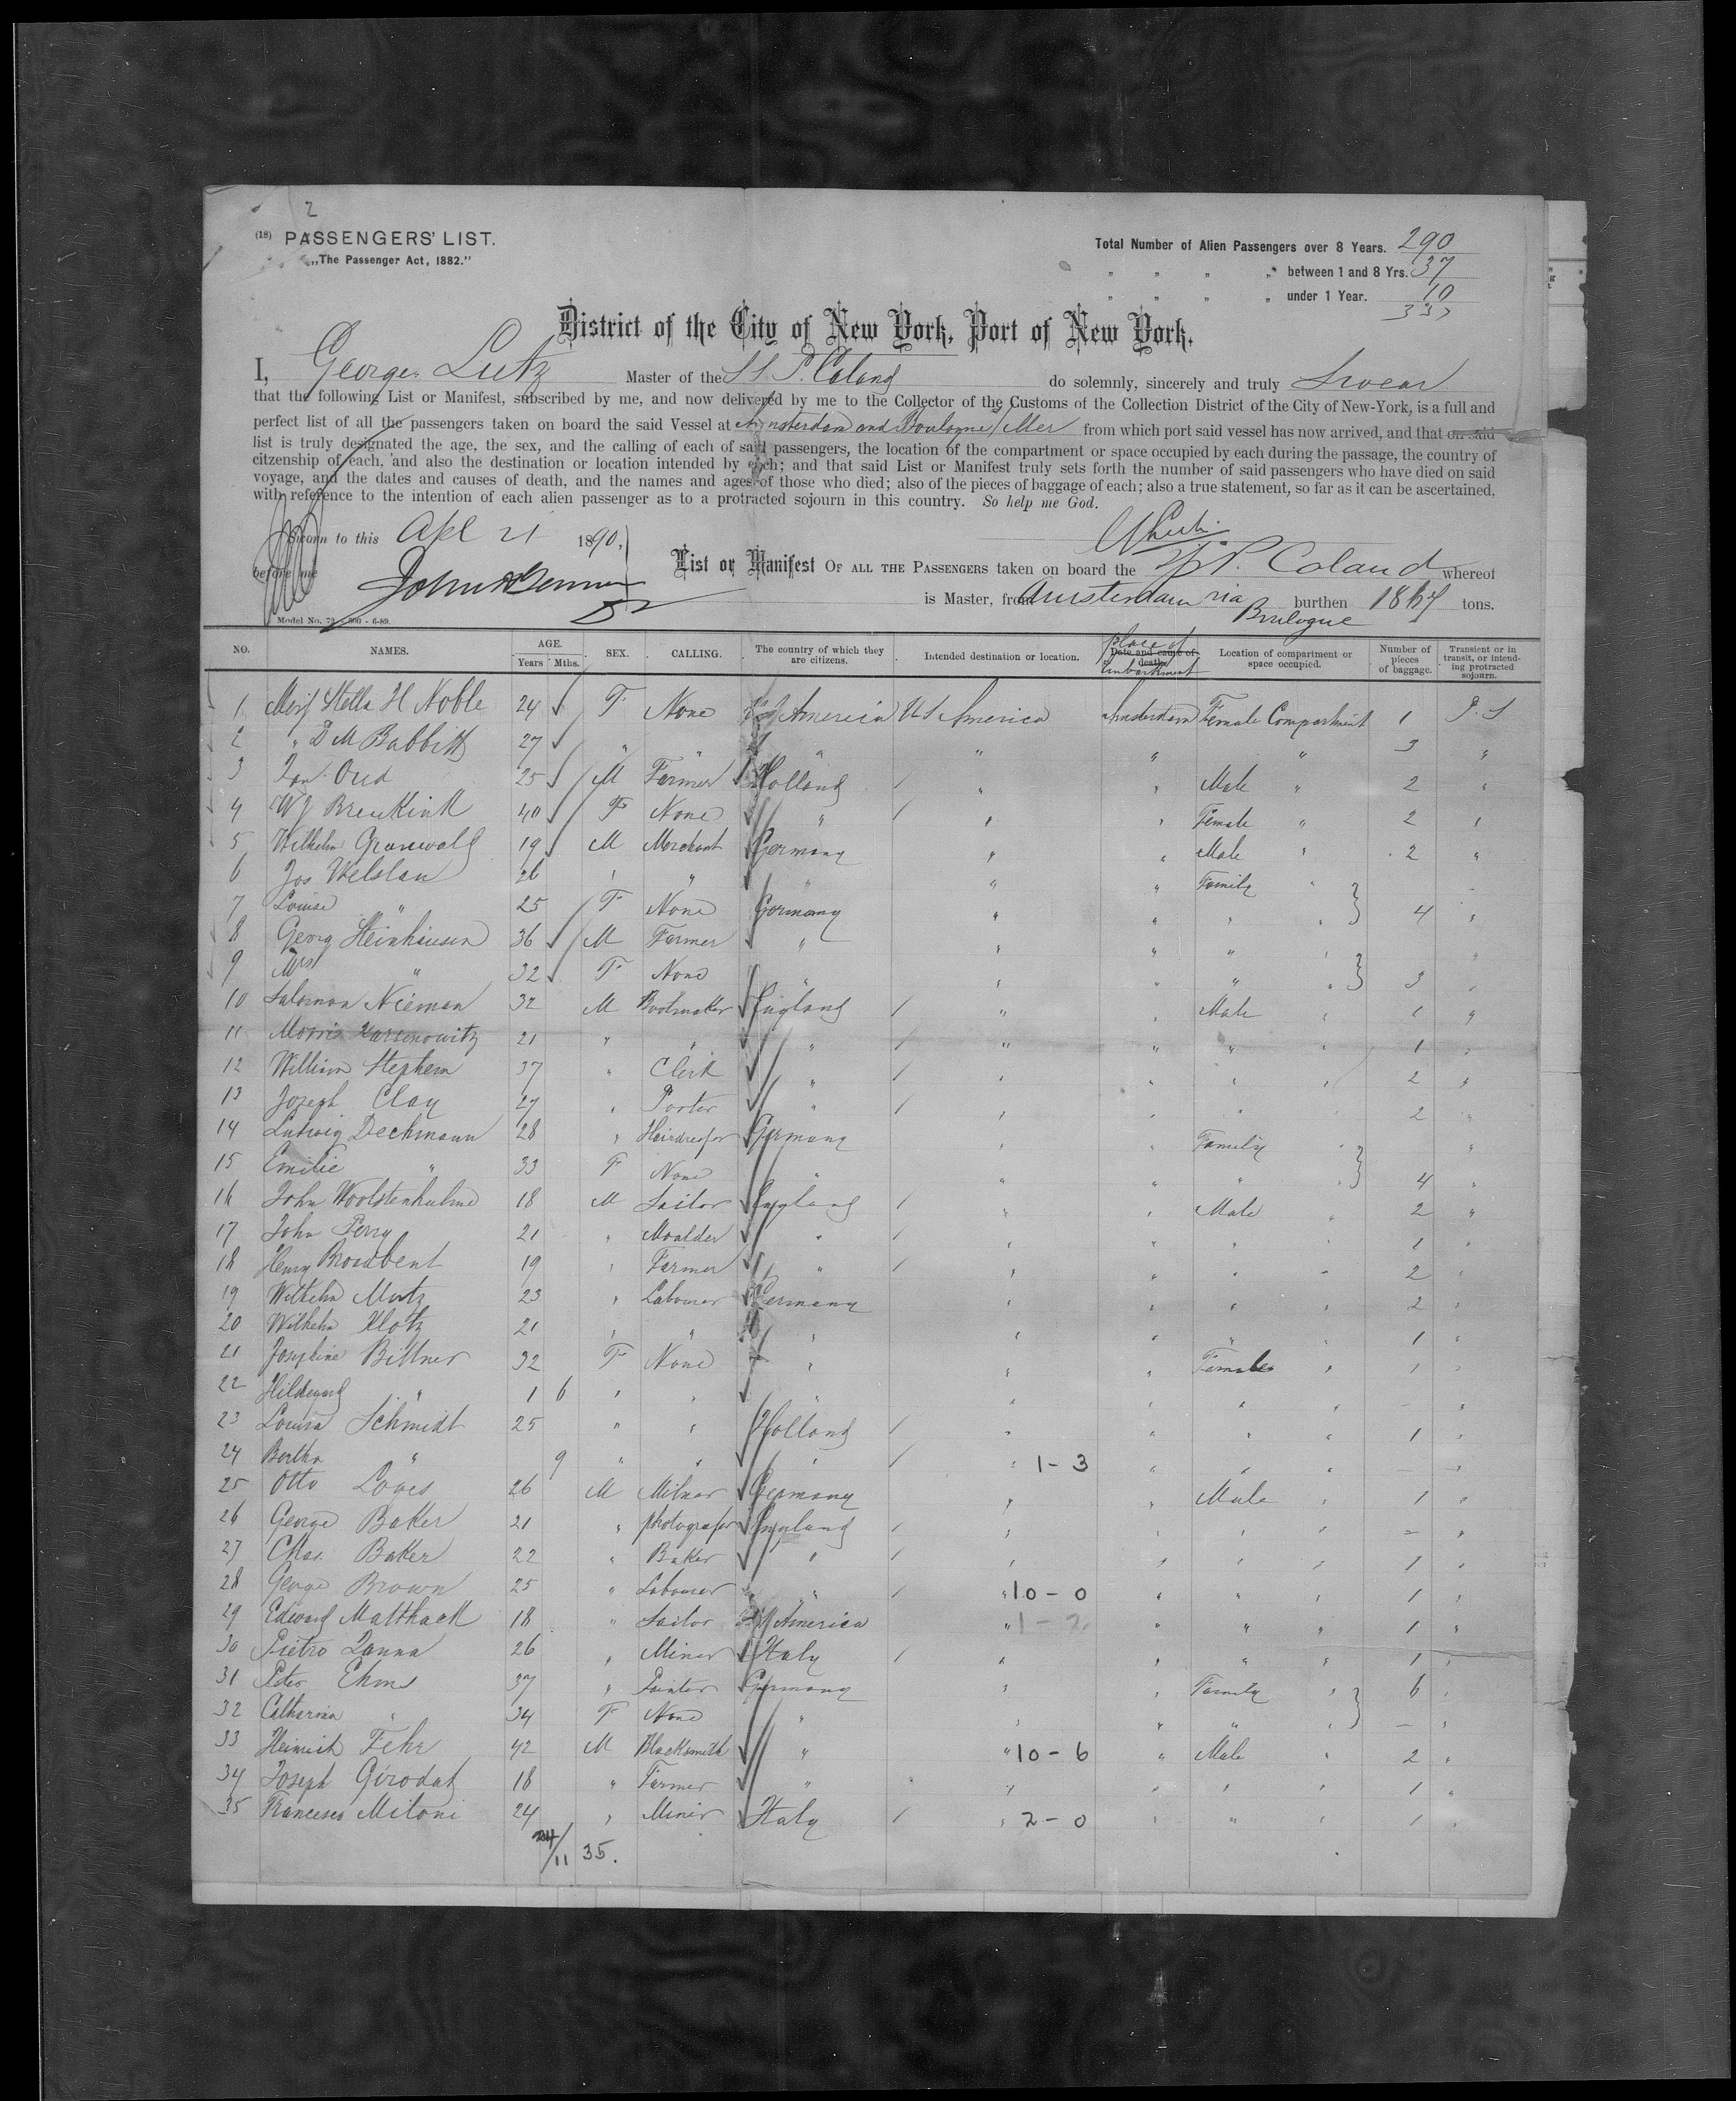 2
(18) PASSENGERS' LIST.
„The Passenger Act, 1882."
Total Number of Alien Passengers over 8 Years. 290
„ „ „ „ between 1 and 8 Yrs. 37
„ „ „ „ under 1 Year. 10
337
District of the City of New York, Port of New York.
I, George Lutz Master of the SS P. Caland do solemnly, sincerely and truly swear
that the following List or Manifest, subscribed by me, and now delivered by me to the Collector of the Customs of the Collection District of the City of New-York, is a full and
perfect list of all the passengers taken on board the said Vessel at Amsterdam and Boulogne s/Mer from which port said vessel has now arrived, and that on said
list is truly designated the age, the sex, and the calling of each of said passengers, the location of the compartment or space occupied by each during the passage, the country of
citzenship of each, and also the destination or location intended by each; and that said List or Manifest truly sets forth the number of said passengers who have died on said
voyage, and the dates and causes of death, and the names and ages of those who died; also of the pieces of baggage of each; also a true statement, so far as it can be ascertained,
with reference to the intention of each alien passenger as to a protracted sojourn in this country. So help me God.
Sworn to this Apl 21 1890,
before me
List or Manifest OF ALL THE PASSENGERS taken on board the P. Caland whereof
is Master, from Amsterdam via Boulogne burthen tons.
Model No. 72 - 500 - 6-89.
NO. NAMES. AGE. Years Mths. SEX. CALLING. The country of which they are citizens. Intended destination or location. Date and cause of death. place of embarkment Location of compartment or space occupied. Number of pieces of baggage. Transient or in transit, or intending protracted sojourn.
1 Miss Stella H Noble 24 F None US America US America Amsterdam Female Compartment 1 P. S
2 " D M Babbitt 27 " " " " " " 3 "
3 Jan Oud 25 M Farmer Holland " " Male " 2 "
4 W J Breukink 40 F None " " " Female " 2 "
5 Wilhelm Grunwald 19 M Merchant Germany " " Male " 2 "
6 Jos Welslau 26 " " " " " Family "
7 Louise " 25 F None Germany " " " " 4 "
8 Georg Heinhausen 36 M Farmer " " " " " "
9 Mrs " 32 F None " " " " " 3 "
10 Salomon Nieman 32 M Bootmaker England " " Male " 1 "
11 Morris Harsenowitz 21 " " " " " " " 1 "
12 William Stephen 37 " Clerk " " " " " 2 "
13 Joseph Clay 27 " Porter " " " " " 2 "
14 Ludwig Dechmann 28 " Hairdresser Germany " " Family " "
15 Emilie " 33 F None " " " " " 4 "
16 John Woolstenhulme 18 M Sailor England " " Male " 2 "
17 John Perry 21 " Moulder " " " " " 1 "
18 Henry Broadbent 19 " Farmer " " " " " 2 "
19 Wilhelm Mutz 23 " Labourer Germany " " " " 2 "
20 Wilhelm Klotz 21 " " " " " " " 1 "
21 Josephine Bittner 32 F None " " " Female " 1 "
22 Hildegard " 1 6 " " " " " " " - "
23 Louisa Schmidt 25 " " Holland " " " " 1 "
24 Bertha " 9 " " " " 1 - 3 " " " - "
25 Otto Loges 26 M Milner Germany " " Male " 1 "
26 George Baker 21 " photografer England " " " " - "
27 Chas. Baker 22 " Baker " " " " " 1 "
28 George Brown 25 " Labourer " " 10 - 0 " " " 1 "
29 Edward Matthack 18 " Sailor US America " 1 - 2 " " " 1 "
30 Pietro Zanna 26 " Miner Italy " " " " 1 "
31 Peter Ehms 37 " Painter Germany " " Family " 6 "
32 Catharina " 34 F None " " " " " - "
33 Heinrich Fehr 42 M Blacksmith " " 10 - 6 " Male " 2 "
34 Joseph Girodat 18 " Farmer " " " " " 1 "
35 Francesco Mitoni 24 " Miner Italy " 2 - 0 " " " 1 "
24/11 35.